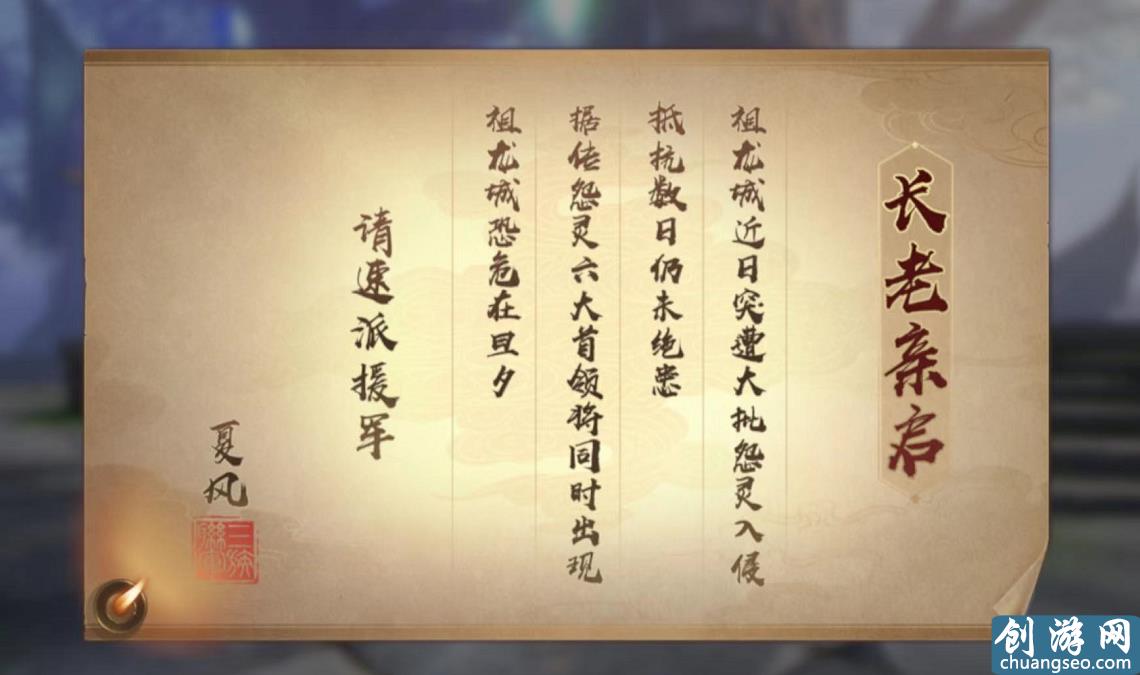 长老亲启
祖龙城近日突遭大批怨灵入侵
抵抗数日仍未绝患
据传怨灵六大首领将同时出现
祖龙城恐危在旦夕
请速派援军
夏风
三族
联军
创游网
chuangseo.com